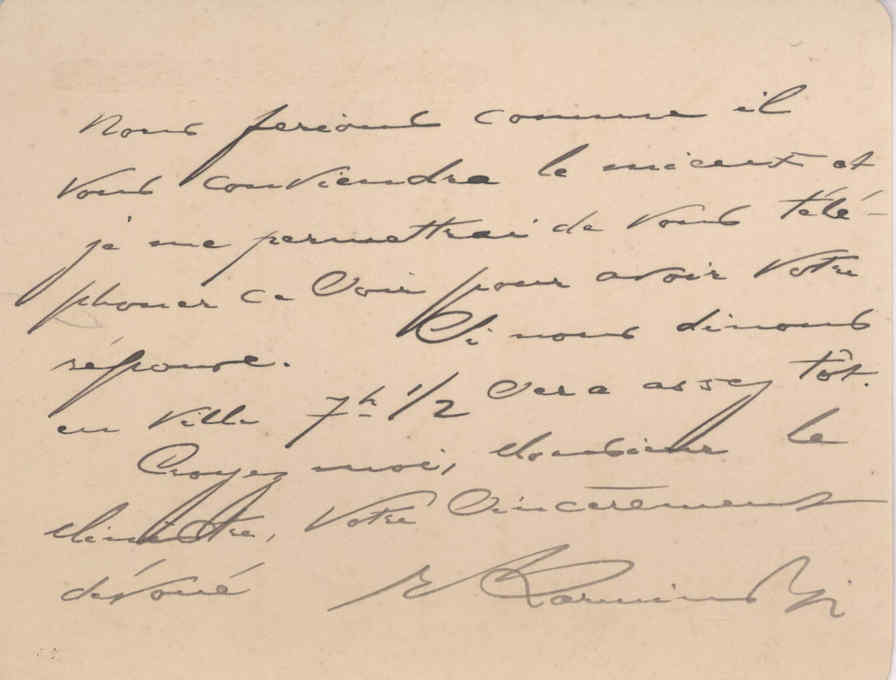 Nous ferions comme il
vous conviendra le mieux et
je me permettrai de vous télé-
phoner ce soir pour avoir votre
réponse. Si nous dinons
en ville 7h 1/2 sera assez tôt.
Croyez moi, Monsieur le
Ministre, votre sincèrement
dévoué